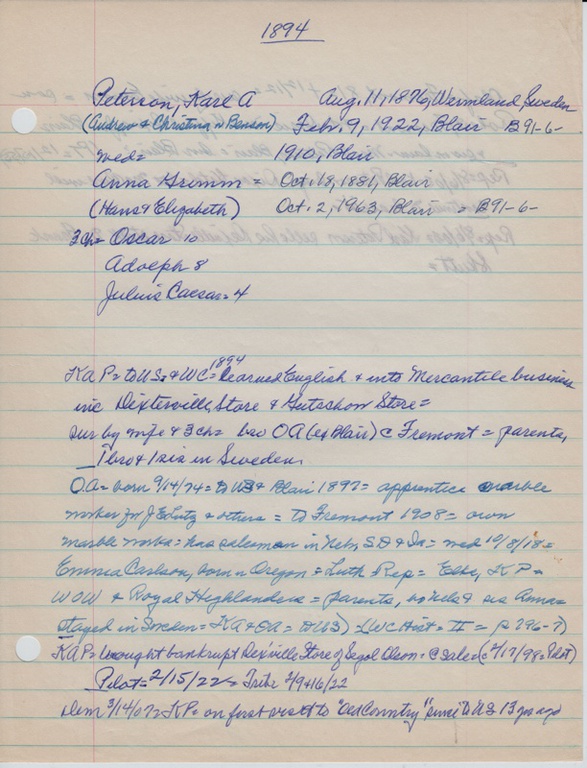 1894
Peterson, Karl A Aug. 11, 1876, Warmland, Sweden
(Andrew & Christina n Benson) Feb. 9, 1922, Blair B91-6-
med= 1910, Blair
Anna Grimm = Oct. 18, 1881, Blair
(Hans & Elizabeth) Oct. 2, 1963, Blair = B91-6-
3ch= Oscar 10
Adolph 8
Julius Caesar= 4
1894
KaP= to US. & WC= learned English & into Mercantile business
inc Dexterville Store & Gutschow Store=
sur by wife & 3ch= bro OA (ex Blair) @ Fremont = parents,
1bro & 1sis in Sweden.
OA= born 9/14/74= to US & Blair 1892= apprentice marble
worker for J E Lutz & others = to Fremont 1908= own
marble works= has salesman in Neb, SD & Ia= med 10/8/18=
Emma Carlson, born n Oregon = Luth Rep= Elks, KP=
WOW & Royal Highlanders = parents, & sis Anna=
stayed in Sweden= KA & OA= to US) = (WC Hist= II = p 296-7)
KAP= bought bankrupt Dexville Store of Segol Olson= @ sale= (2/17/98= Pilot)
Pilot= 2/15/22= Trib= 2/9&16/22
Dem 3/14/07= KP= on first visit to "Old Country" since to US 13 yrs ago